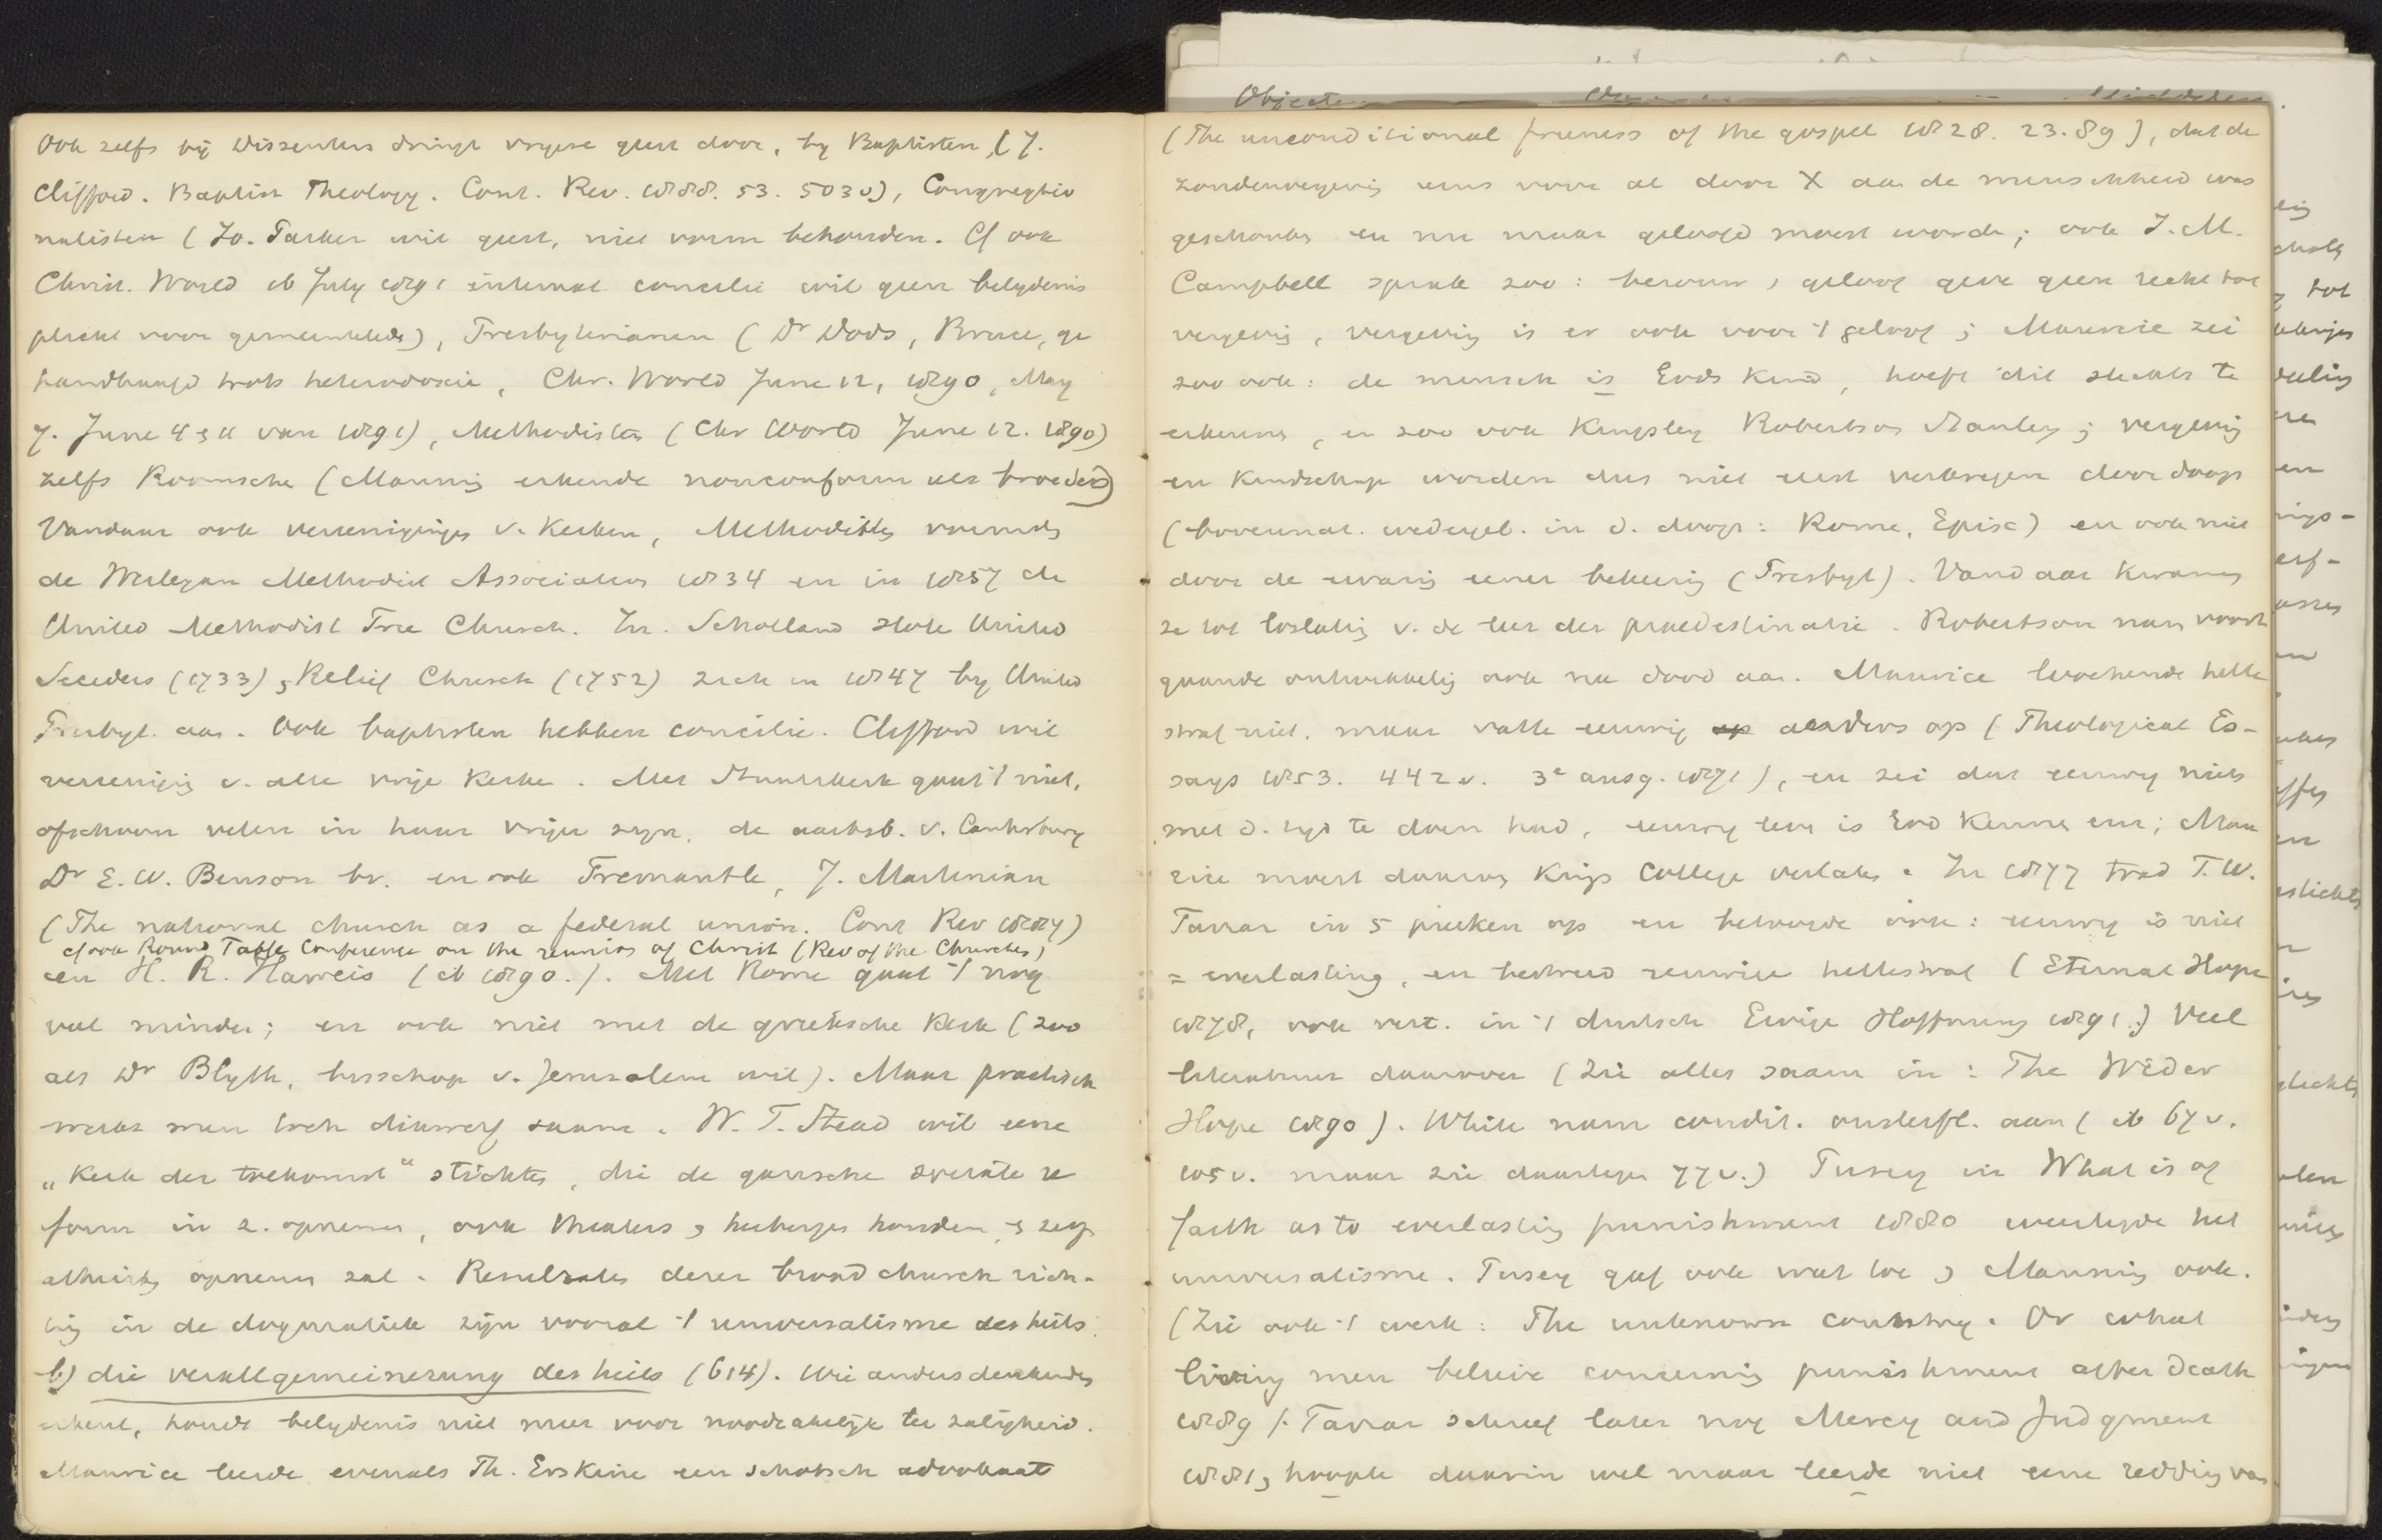 Ook zelfs bij Dissenters dringt vrijere geest door, by Baptisten, (J.
Clifford. Baptist Theology. Cont. Rev. 1888. 53. 503v), Congregatio
nalisten (Jo. Parker wil geest, niet vorm behouden. Cf ook
Christ. World ib July 1891 internat concilie wil geen belydenis
plicht voor gemeenteleden), Presbyterianen (Dr Dods, Bruce, ge
handhaafd trots heterodoxie, Chr. World June 12, 1890, May
7. June 4 & 11 van 1891), Methodisten (Chr World June 12. 1890)
zelfs Roomsche (Manning erkende nonconform als broeders)
Vandaar ook vereenigingen v. Kerken, Methodisten vormden
de Wesleyan Methodist Association 1834 en in 1857 de
United Methodist Free Church. In Schotland sloten United
Seceders (1733) & Relief Church (1752) zich in 1847 by United
Presbyt. aan. Ook baptisten hebben concilie. Clifford wil
vereeniging v. alle vrije Kerken. Met Staatskerk gaat 't niet,
ofschoon velen in haar vrijer zijn, de aartsb. v. Canterbury
Dr E. W. Benson bv. en ook Fremantle, J. Martineau
(The national church as a federal union. Cont Rev 1887)
cf ook Round Table Conference on the reunion of Christ (Rev of the Churches)
en H. R. Haweis (ib 1890.). Met Rome gaat 't nog
veel minder; en ook niet met de grieksche Kerk (zoo
als Dr Blyth, bisschop v. Jerusalem wil). Maar practisch
werkt men toch dikwerf saam. W. T. Stead wil eene
„Kerk der toekomst“ stichten, die de gansche sociale re
form in z. opnemen, ook theaters & herbergen houden, & zelfs
atheisten opnemen zal. Resultaten dezer broad church rich-
ting in de dogmatiek zijn vooral 't universalisme des heils.
b) die verallgemeinerung des heils (614). Wie andersdenkenden
erkent, houdt belydenis niet meer voor noodzakelijk ter zaligheid.
Maurice leerde evenals Th. Erskine een schotsch advokaat
(The unconditional freeness of the gospel 1828. 23. 89), dat de
zondenvergeving eens voor al door X aan de menschheid was
geschonken en nu maar geloofd moest worden; ook J. M.
Campbell sprak zoo: berouw, geloof geve geen recht tot
vergeving, vergeving is er ook voor 't geloof; Maurice zei
zoo ook: de mensch is Gods Kind, hoeft dit slechts te
erkennen, en zoo ook Kingsley Robertson Stanley; vergeving
en Kindschap worden dus niet eerst verkregen door doop
(bovennat. wedergeb. in d. doop: Rome, Episc) en ook niet
door de ervaring eener bekeering (Presbyt). Vandaar kwamen
ze tot loslating v. de leer der praedestinatie. Robertson nam voort
gaande ontwikkeling ook na dood aan. Maurice loochende helle
straf niet, maar vatte eeuwig op anders op (Theological Es-
says 1853. 442v. 3e ausg. 1871), en zei dat eeuwig niets
met d. tijd te doen had, eeuwig leven is God Kennen enz; Mau
rice moest daarom Kings College verlaten. In 1877 trad F. W.
Farrar in 5 preeken op en betoogde ook: eeuwig is niet
= everlasting, en bestreed eeuwige hellestraf (Eternal Hope
1878, ook vert. in 't duitsch Ewige Hoffnung 1891.) Veel
literatuur daarover (Zie alles saam in: The Wider
Hope 1890). White nam condit. onsterfl. aan (ib 67v.
105v. maar zie daartegen 77v.) Pusey in What is of
faith as to everlasting punishment 1880 weerlegde het
universalisme. Pusey gaf ook wat toe & Manning ook.
(Zie ook 't werk: The unknown country. Or what
living men believe concerning punishment after death
1889). Farrar schreef later nog Mercy and Judgment
1881, hoopte daarin wel maar leerde niet eene redding van